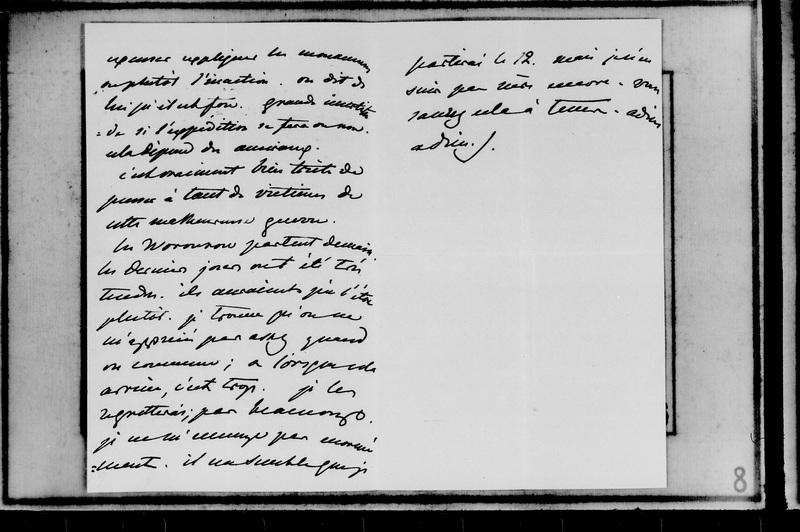 expliquer les mouvemens
ou plutôt l'inaction. on dit de
lui qu'il est fou. grande incertitu
=de si l'expédition se fera ou non.
cela dépend du
c'est vraiment bien triste de
penser à tant de victimes de
cette malheureuse guerre.
les Woronzow partent demain
les derniers jours ont été très
tendres. ils auraient pu l'être
plutôt. je trouve qu'on ne
m'apprécie pas assez quand
on commence; & lorsque cela
arrive, c'est trop. je les
regretterai; pas beaucoup.
je ne m'ennuye pas énormé
=ment. il me semble que je
partirai le 12. mais je n'en
suis pas sûre encore. vous
saurez cela à tems. adieu
adieu.
8